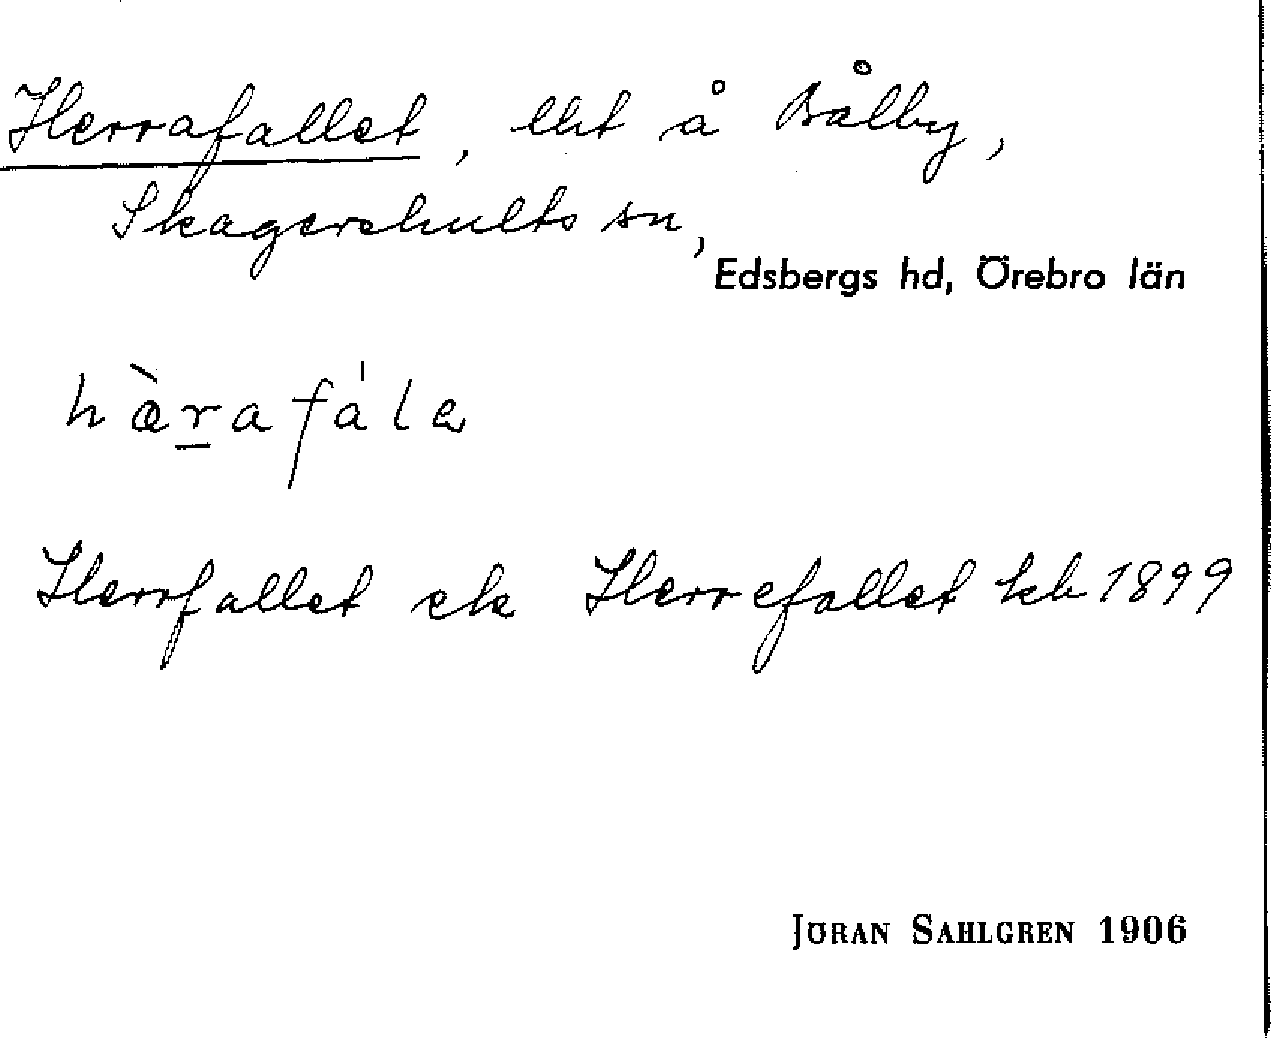 Herrafallet, lht å Bålby,
Skagershults sn,
Edsbergs hd, Örebro län
hæ̀r̲afálə
Herrfallet ek Herrefallet hch 1899
JÖRAN SAHLGREN 1906